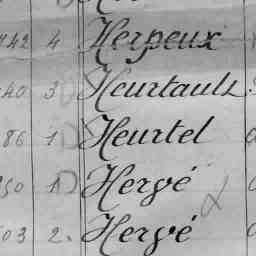 742 4 Herpeux
40 3 Heurtault
86 1 Heurtel
50 1 Hervé
03 2. Hervé